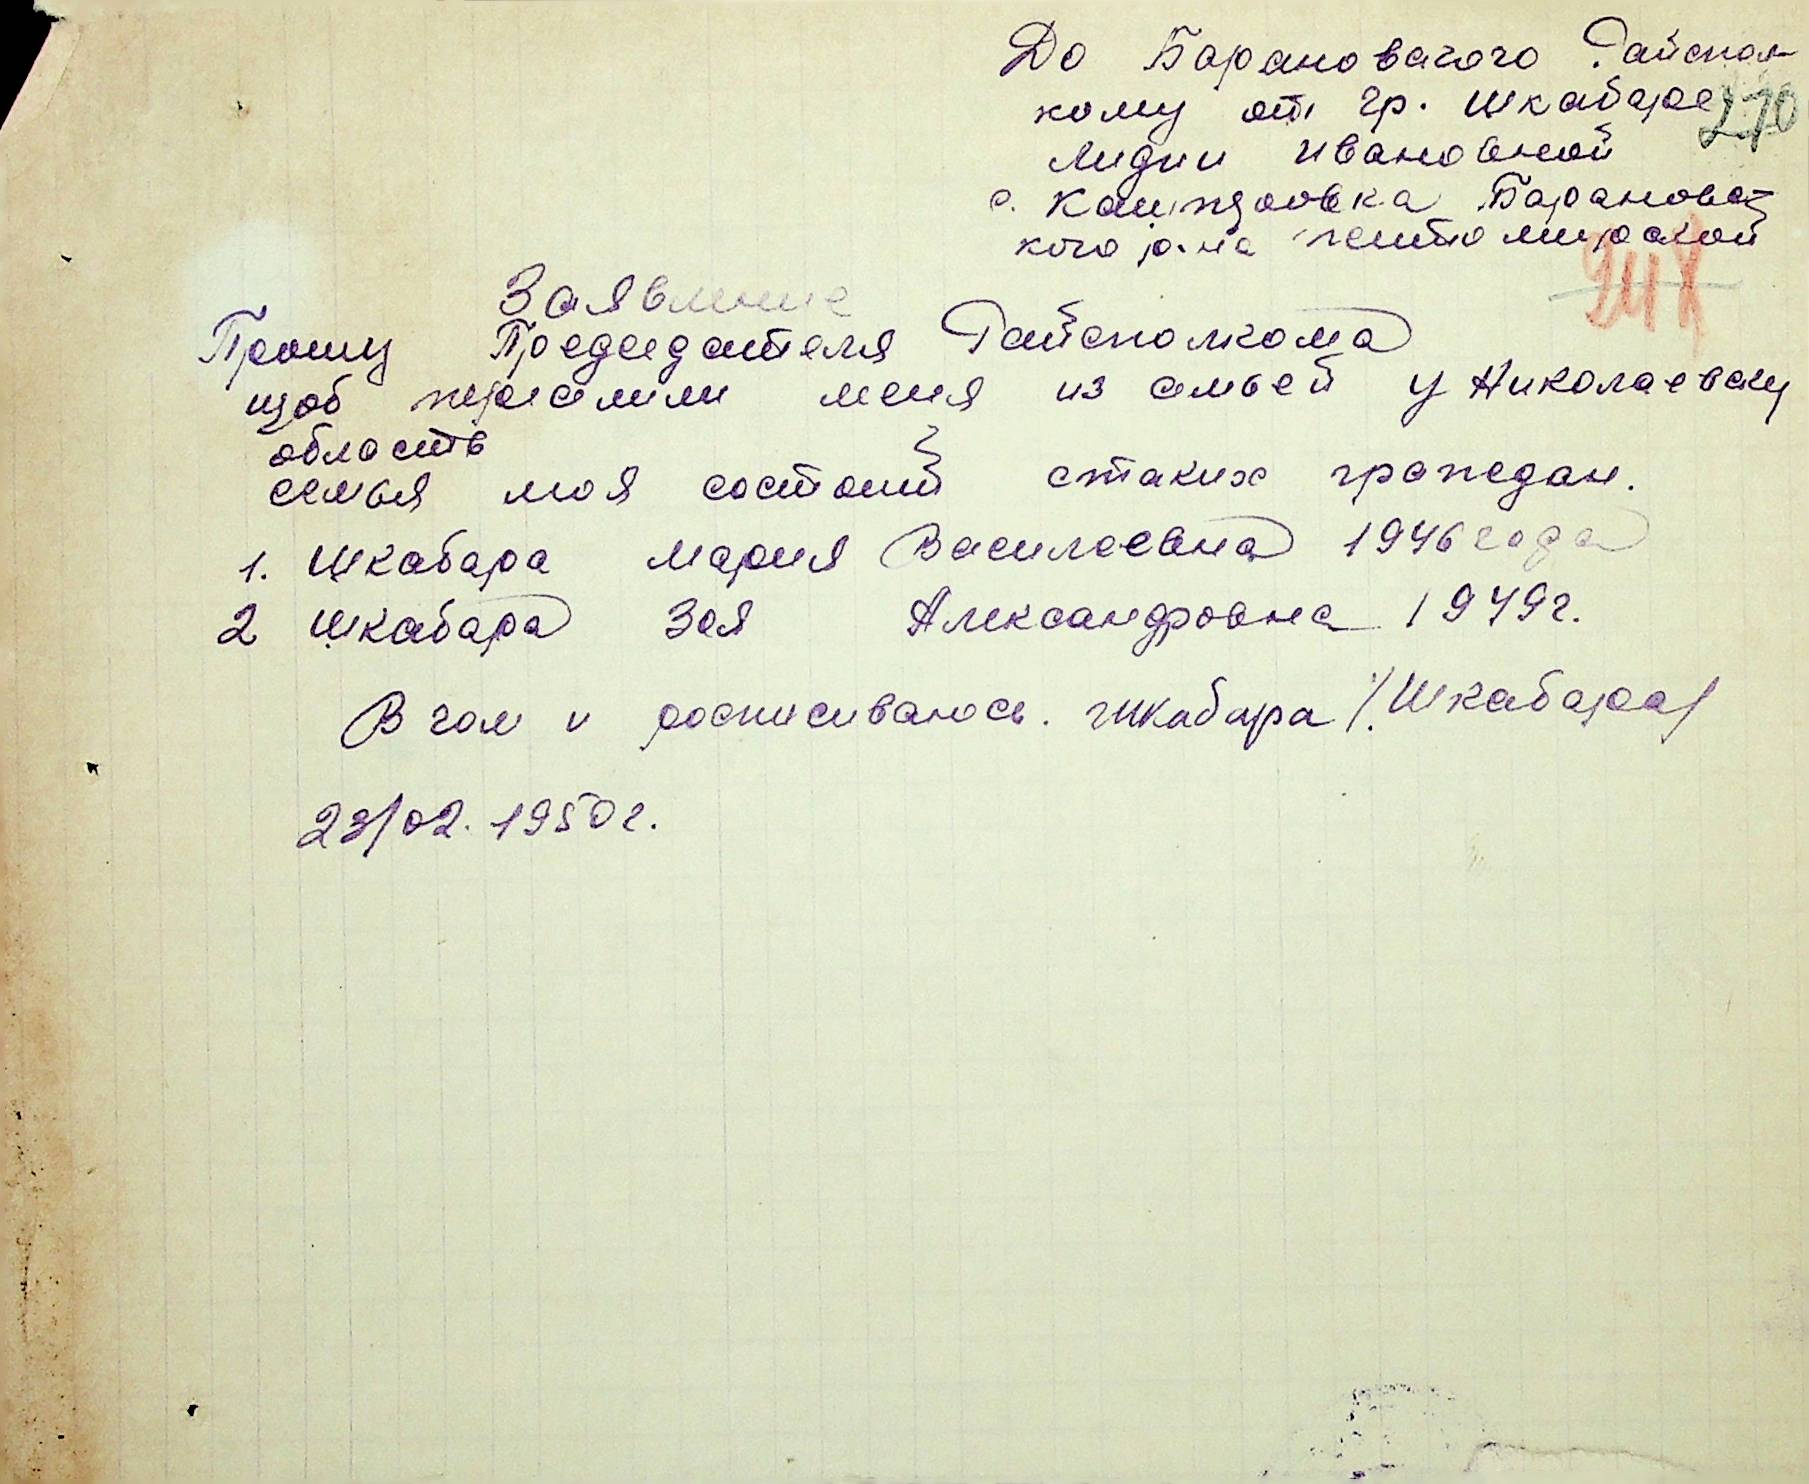 До Барановского Райспол
кому от гр. Шкабаре
270
Лидии Ивановной
с. Барановс-
кого р-на Житомирской
248
Заявление
Прошу Председателя Райсполкома
щоб переселили меня из семьей у Николаевску
область
семья моя состоит стаких граждан.
1. Шкабара Мария Василевна 1946 года
2 Шкабара Зоя Александровна 1949 г.
В чом и росписиваюсь. Шкабара /Шкабара/
23/02. 1950 г.